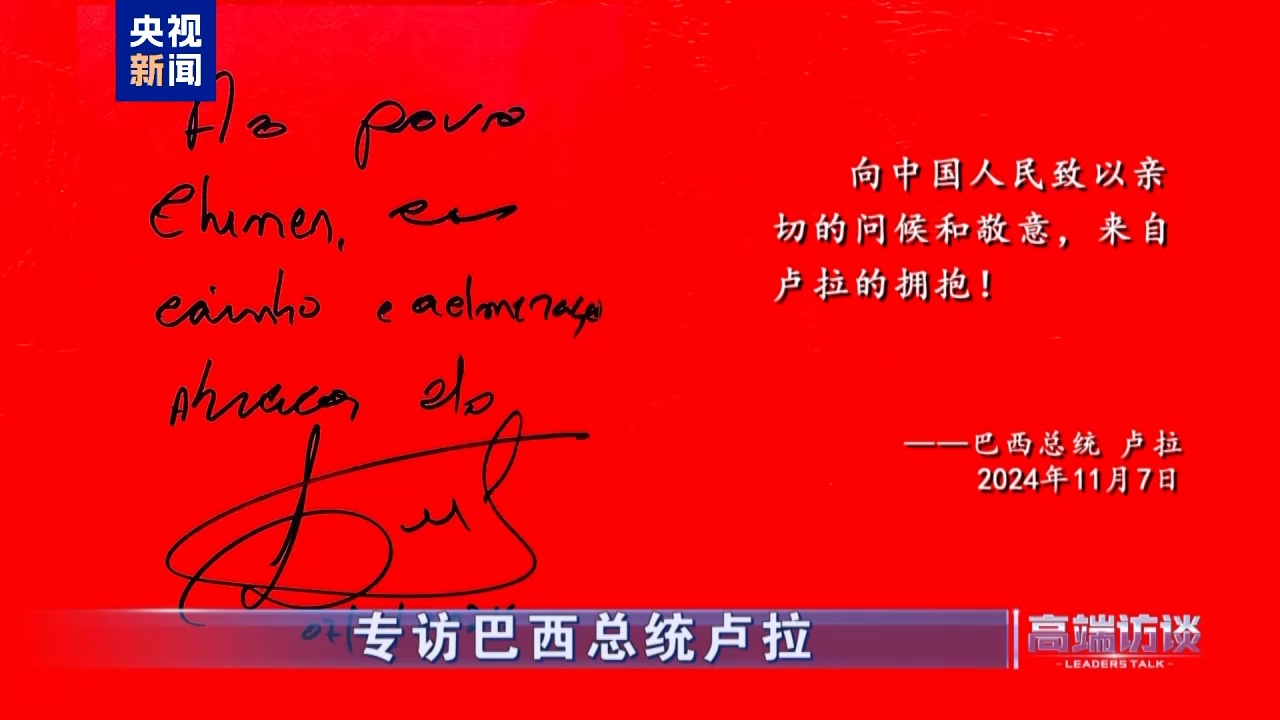 央视
新闻
Ao povo
Chines, com
carinho e admiração
Abraços do
Lula
向中国人民致以亲
切的问候和敬意，来自
卢拉的拥抱！
——巴西总统 卢拉
2024年11月7日
专访巴西总统卢拉
高端访谈
- LEADERS TALK -